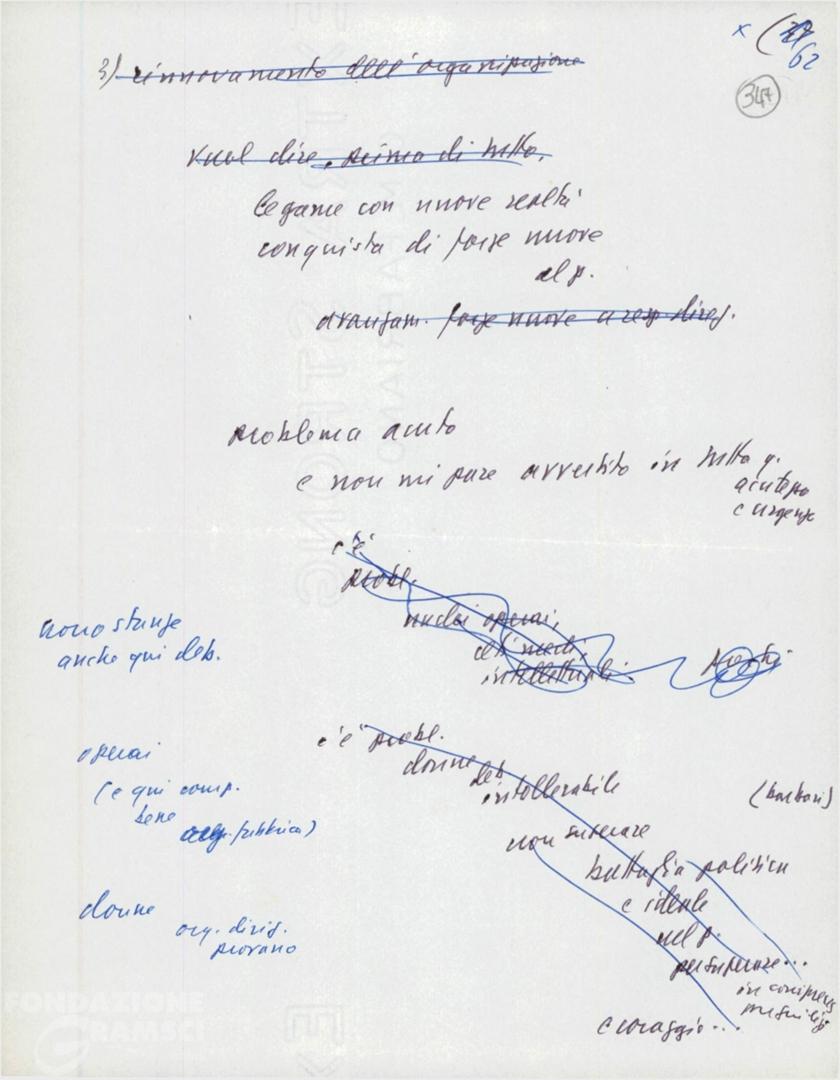 62
347
3) rinnovamento dell'organizzazione
vuol dire, prima di tutto,
legame con nuove realtà
conquista di forze nuove
al p.
avanzam. forze nuove a resp. direz.
problema acuto
e non mi pare avvertito in tutta q.
acutezza
e urgenza
c'è
probl.
nuclei operai,
ceti medi,
intellettuali.
nonostante
anche qui deb.
c'è probl.
donne
deb.
intollerabile
(barbari)
operai
(e qui comp.
bene
fabbrica)
non superare
battaglia politica
e ideale
nel p.
per superare...
donne
org. dirig.
provano
e coraggio...
FONDAZIONE
GRAMSCI